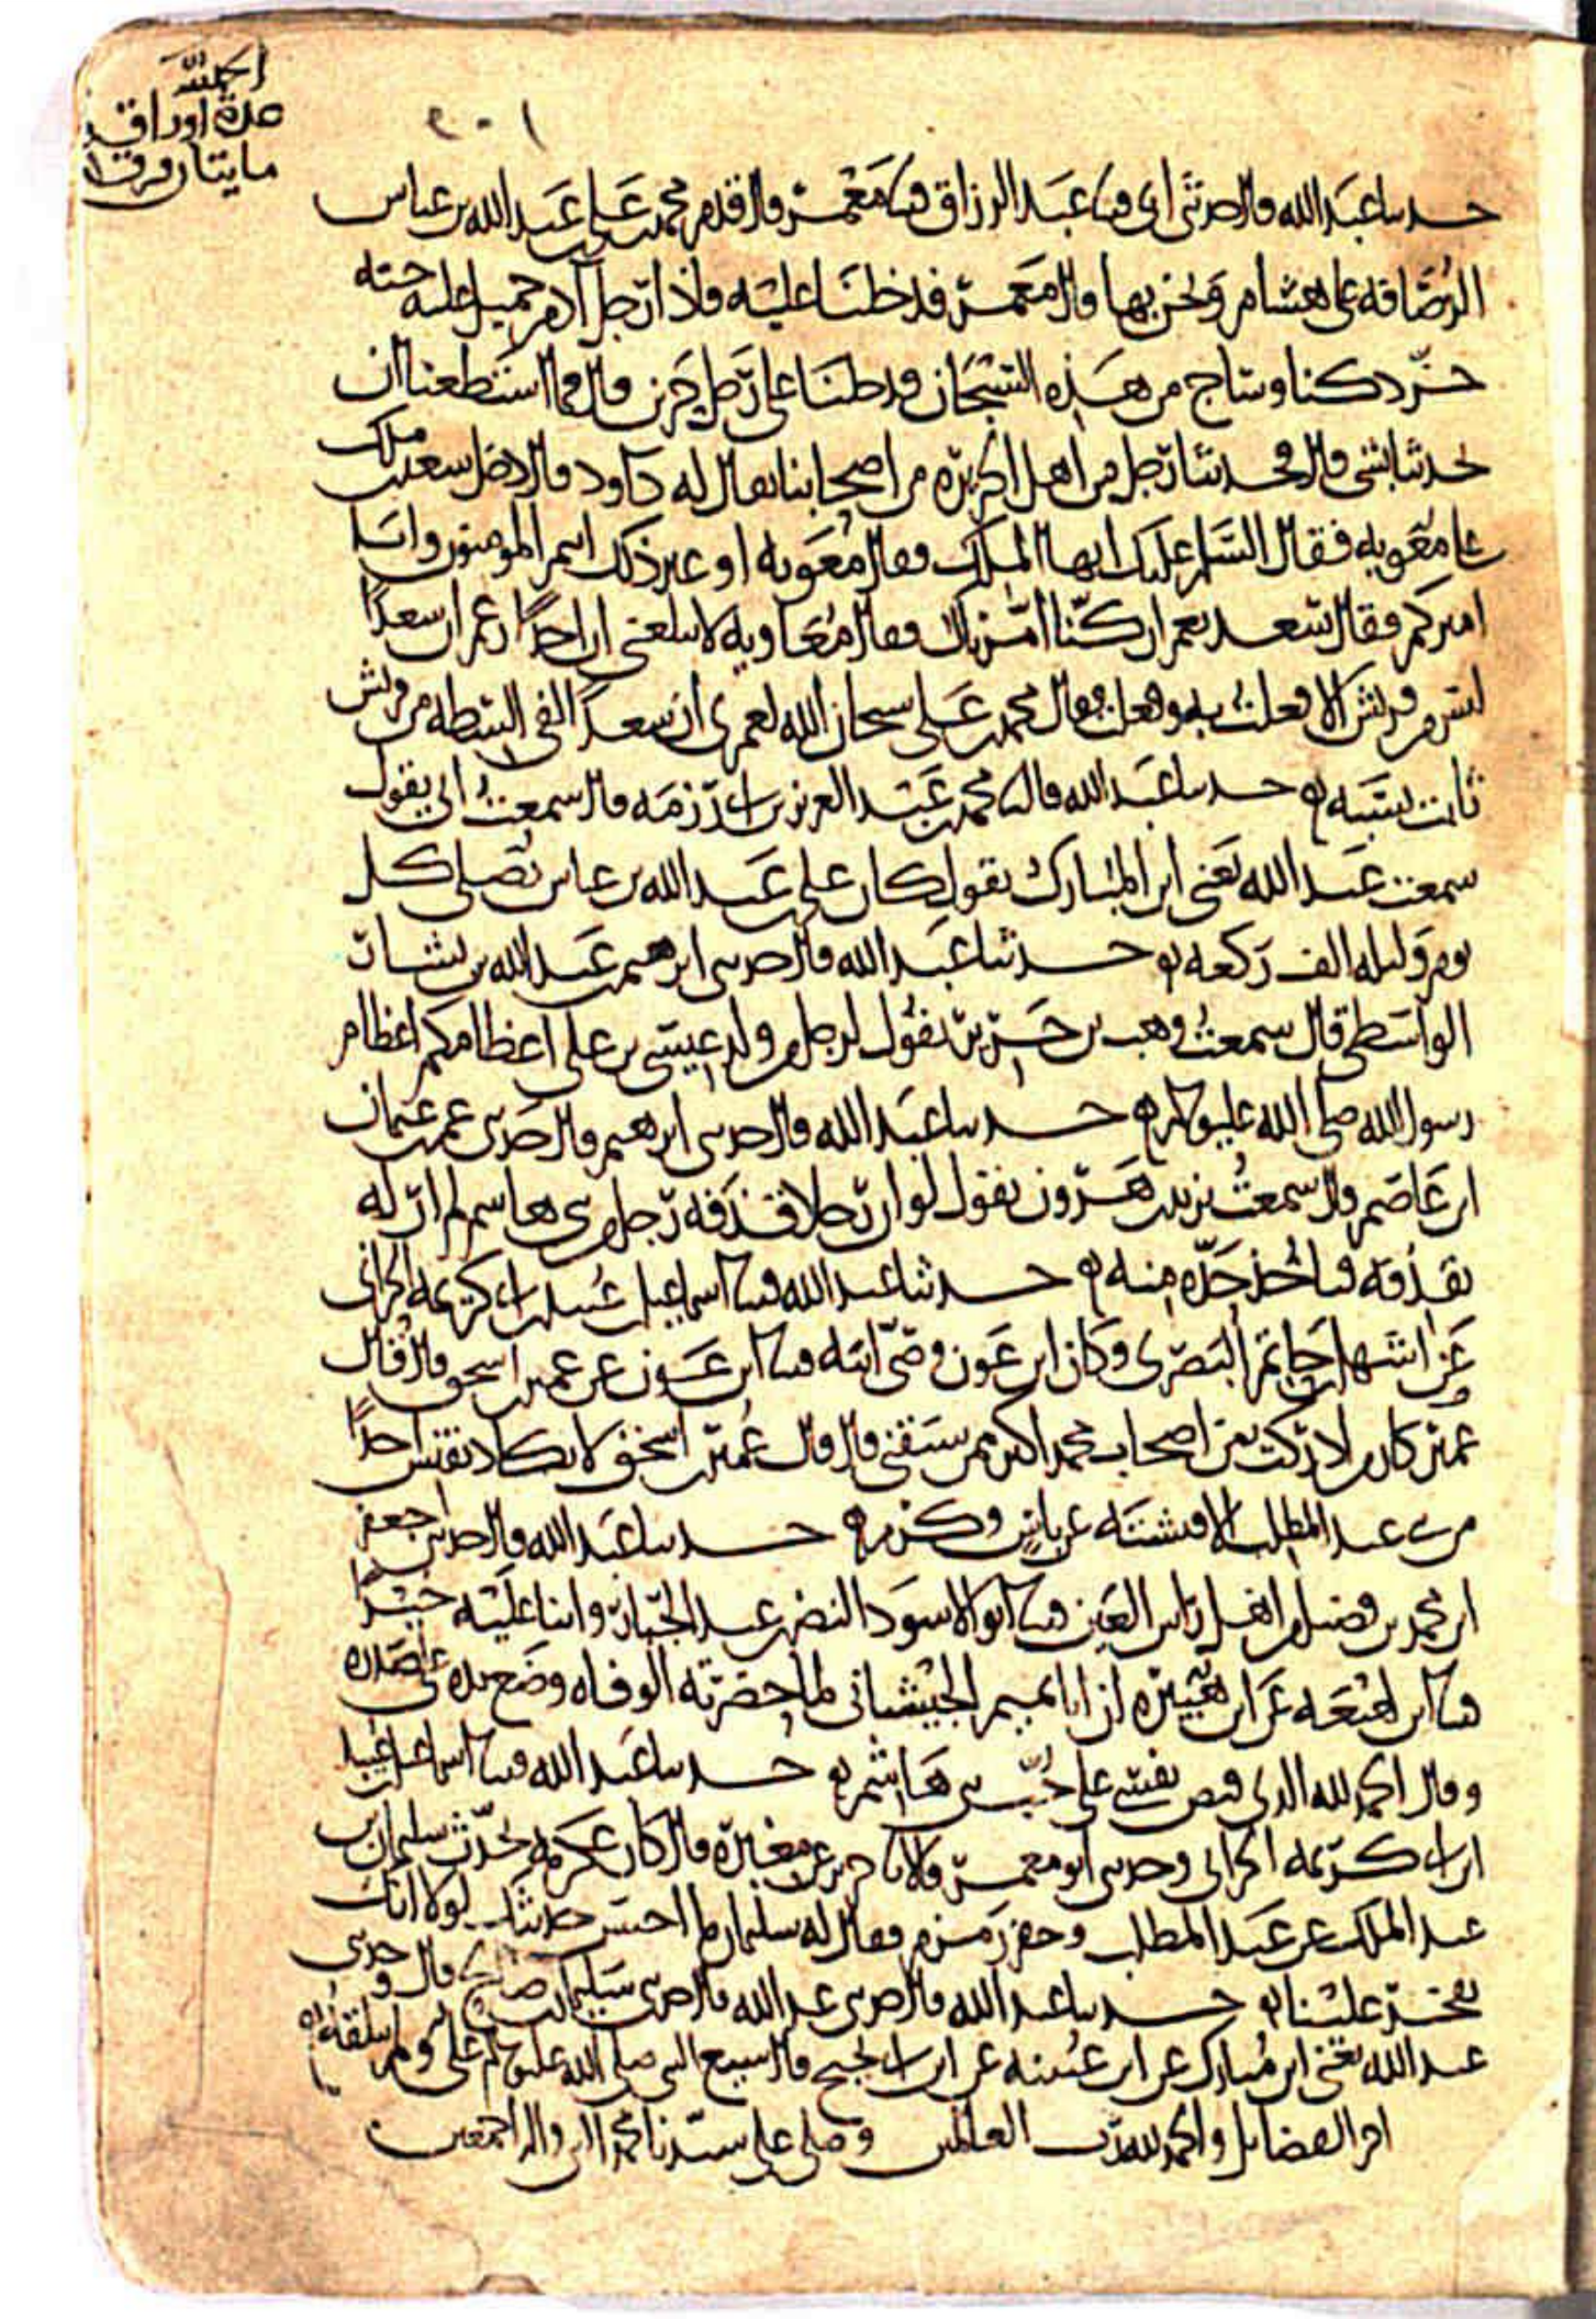 الحمد لله
عدة اوراق
مايتا ورقة
٢٠١
حدثنا عبد الله قال حدثني ابي قثنا عبد الرزاق قثنا معمر قال قدم محمد بن علي بن عبد الله بن عباس
الرصافة على هشام ونحن بها قال معمر فدخلنا عليه فاذا رجل آدم جميل عليه جبة
خز دكنا وساج من هذه السيجان فدخلنا على رجل حزين قال فما استطعنا ان
يحدثنا بشي قال فحدثنا رجل من اهل الجزيرة من اصحابنا يقال له داود قال دخل سعد بن ملك
على معوية فقال السلم عليك ايها الملك فقال معوية او غير ذلك انتم المومنون وانا
اميركم فقال سعد نعم ان كنا امرناك فقال معاوية لا يبلغني ان احدا زعم ان سعدا
ليس من قريش الا فعلت به وفعلت فقال محمد بن علي سبحان الله لعمري ان سعدا لفي السطة من قريش
ثابت نسبه حدثنا عبد الله قال نا محمد بن عبد العزيز بن ابي رزمة قال سمعت ابي يقول
سمعت عبد الله يعني ابن المبارك يقول كان علي بن عبد الله بن عباس يصلي كل
يوم وليلة الف ركعة حدثنا عبد الله قال حدثني ابرهيم بن عبد الله بن بشار
الواسطي قال سمعت وهب بن جرير يقول لرجل من ولد عيسى بن علي اعظامكم اعظام
رسول الله صلى الله عليه وسلم حدثنا عبد الله قال حدثني ابرهيم قال حدثني عمر بن عثمان
ابن عاصم قال سمعت يزيد بن هرون يقول لو ان رجلا قذفه رجل من بني هاشم لم ار له
يقذفه فياخذ حده منه حدثنا عبد الله قثنا اسماعيل بن عبيد بن ابي كريمة الحراني
عن اشهل بن حاتم البصري وكان ابن عون وصي ابيه قثنا ابن عون عن عمير بن اسحق قال قال
عمير كان من ادركت من اصحاب محمد اكثر ممن سبقني قال قال عمير بن اسحق لا تكاد تفتش احدا
من بني عبد المطلب الا فتشته عن باس وكرم حدثنا عبد الله قال حدثني جعفر
ابن محمد بن فضيل من اهل راس العين قثنا ابو الاسود النضر بن عبد الجبار واثنا عليه خيرا
قثنا ابن لهيعة عن ابن هبيرة ان ابا تميم الجيشاني لما حضرته الوفاة وضع يده على صدره
وقال الحمد لله الذي قبض نفسي على حب بني هاشم حدثنا عبد الله قثنا اسماعيل بن عبيد
ابن ابي كريمة الحراني وحدثني ابو معمر قالا نا جرير عن مغيرة قال كان عكرمة يحدث سليمان بن
عبد الملك عن عبد المطلب وحفر زمزم فقال له سليمان ما احسن حديثك لولا انك
تفخر علينا حدثنا عبد الله قال حدثني عبد الله قال حدثني سليمان بن صالح قال وحدثني
عبد الله يعني ابن مبارك عن ابن عيينة عن ابن ابي نجيح قال شيع النبي صلى الله عليه وسلم علي ولم يتلقه
اخر الفضايل والحمد لله رب العالمين وصلى على سيدنا محمد النبي واله اجمعين